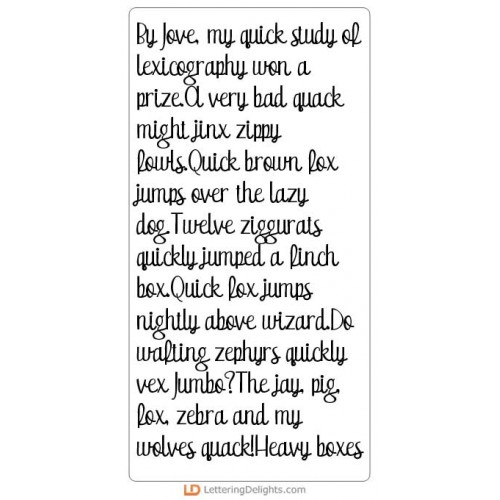 By Jove, my quick study of
lexicography won a
prize.A very bad quack
might jinx zippy
fowls.Quick brown fox
jumps over the lazy
dog.Twelve ziggurats
quickly jumped a finch
box.Quick fox jumps
nightly above wizard.Do
wafting zephyrs quickly
vex Jumbo?The jay, pig,
fox, zebra and my
wolves quack!Heavy boxes
LD LetteringDelights.com